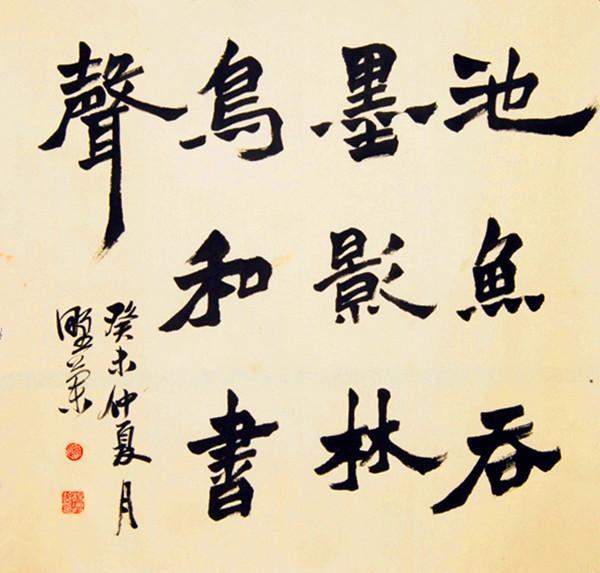 池魚吞
墨影林
鳥和書
聲
癸未仲夏月